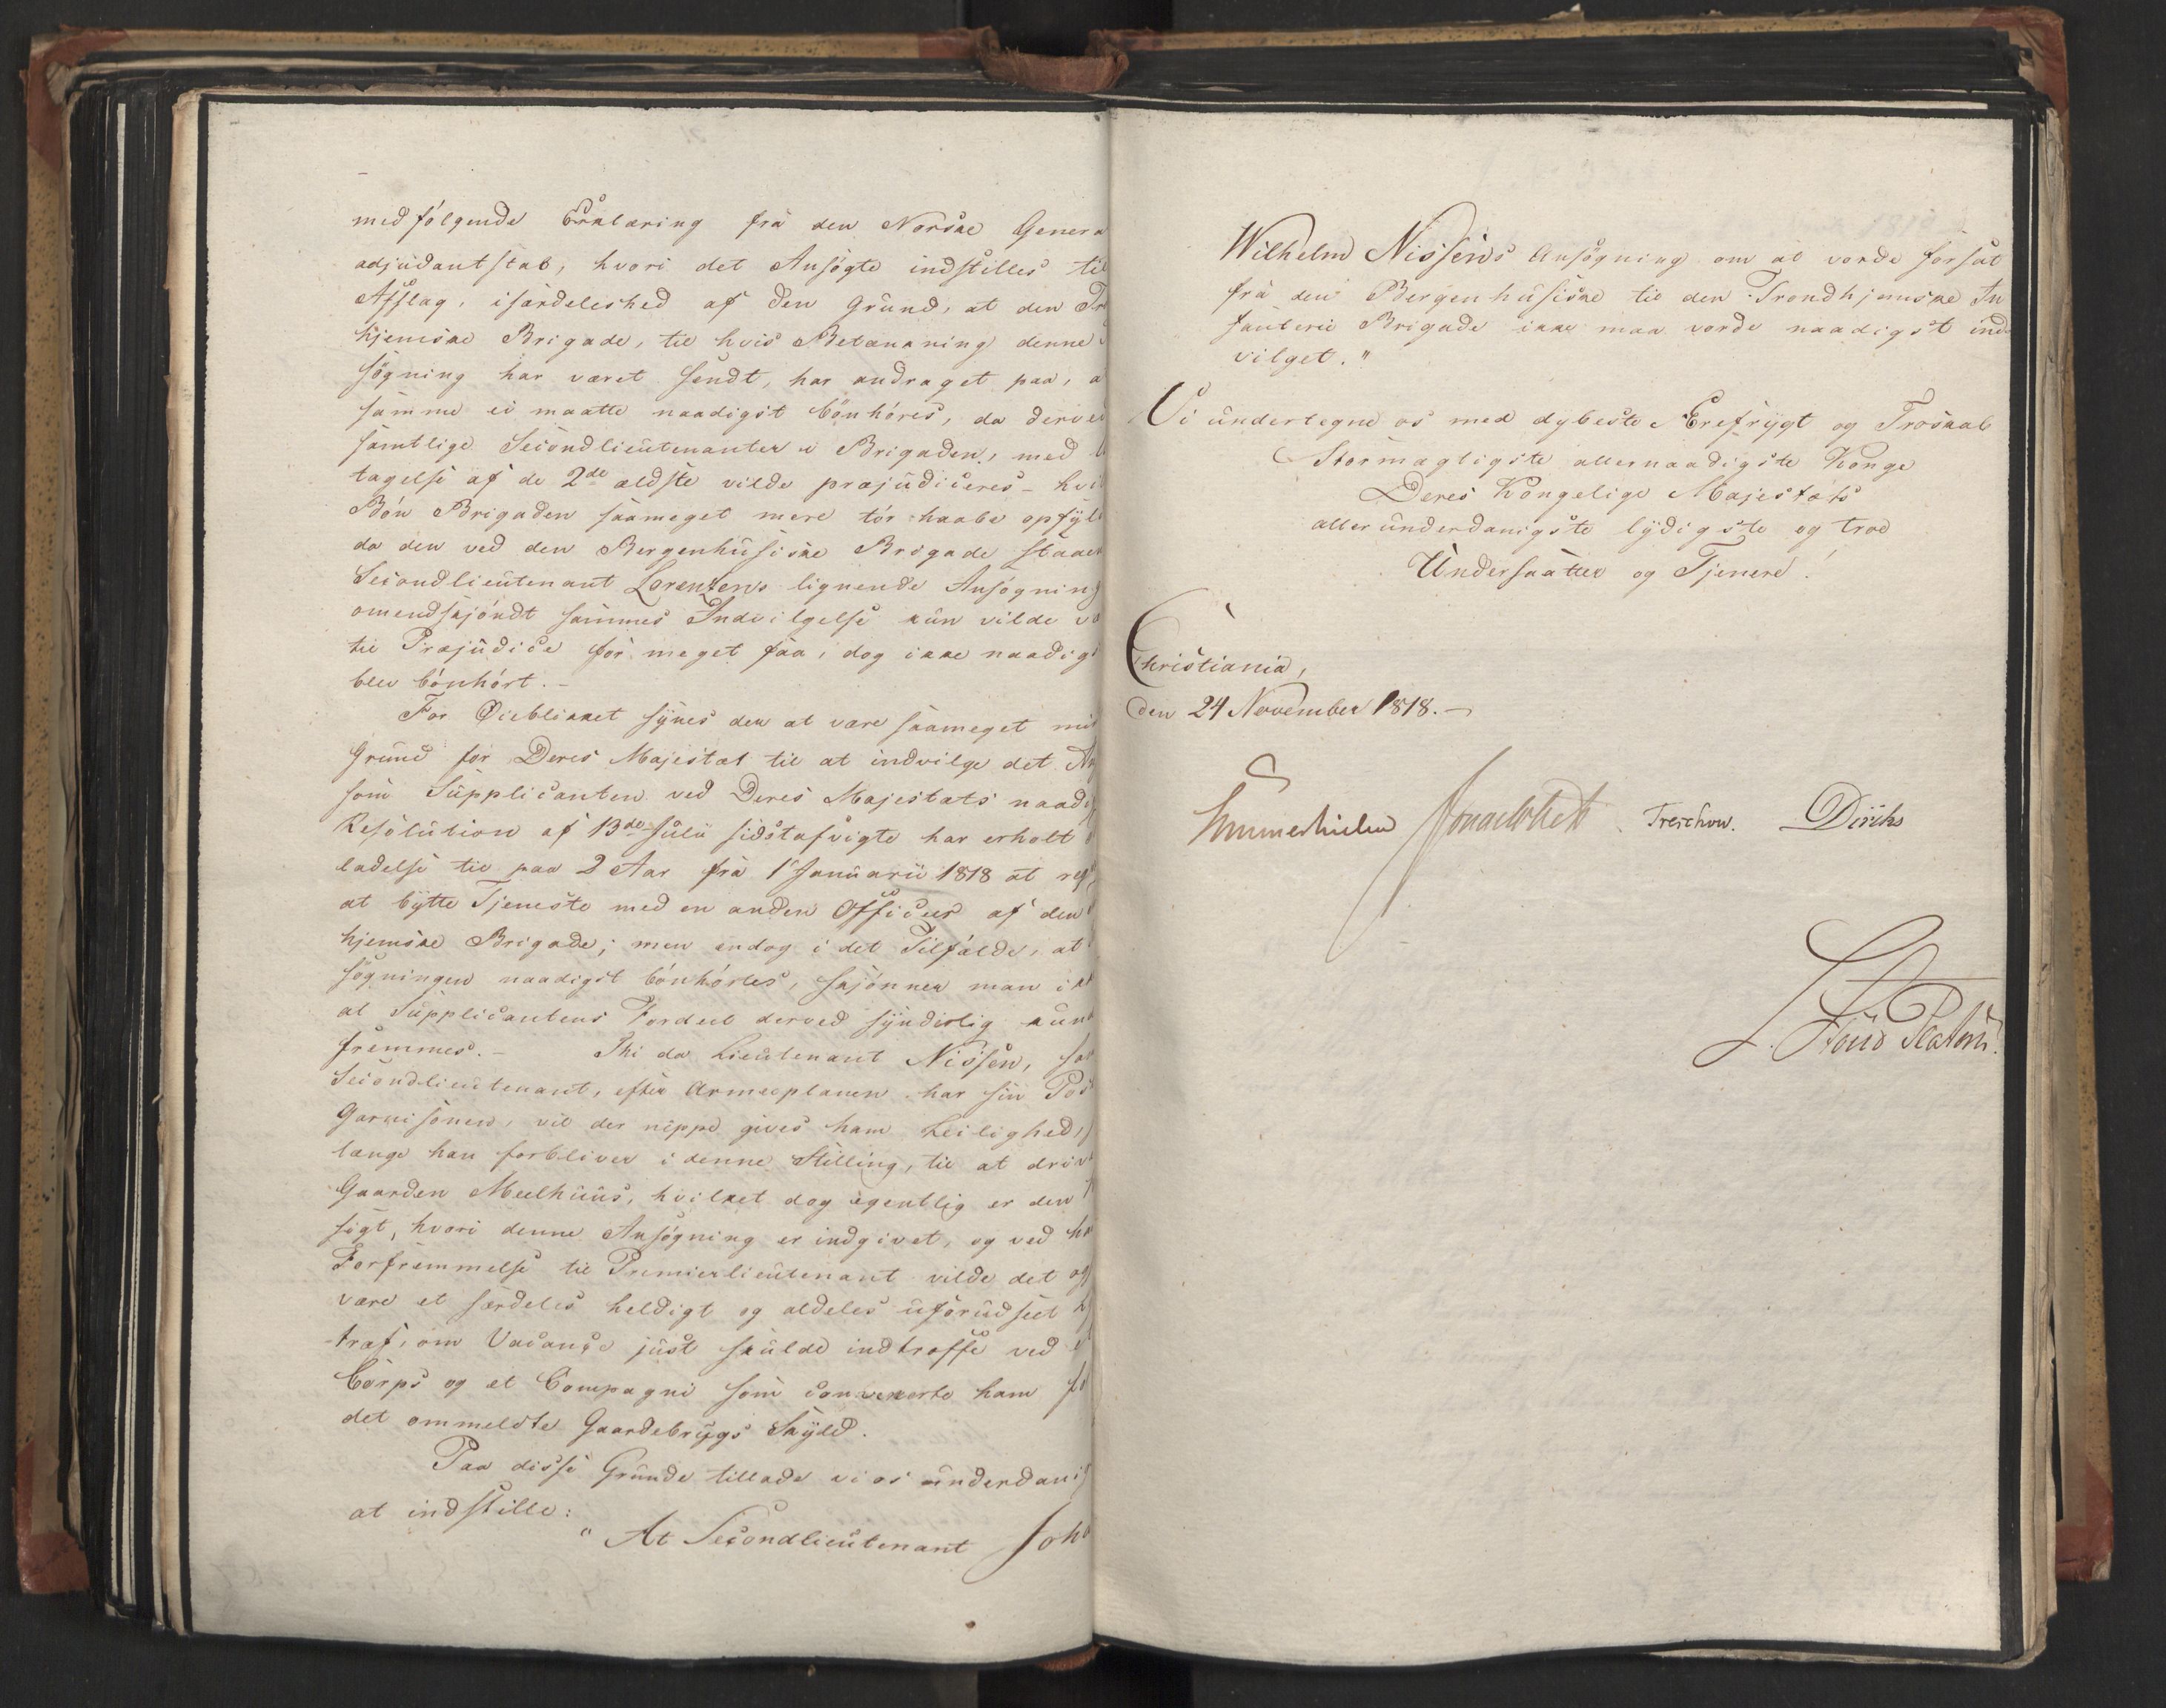 medfølgende Erklæring fra den Norske Genera
adjudantstab, hvori det Ansøgte indstilles til
Afslag, isærdeleshed af den Grund, at den Tr
hjemske Brigade, til hvis Betænkning denne
søgning har været sendt, har andraget paa, a
samme ei maatte naadigst bönhóres, da derve
samtlige Secondlieutenanter i Brigaden, med
tagelse af de 2de ældste vilde præjudiceres - hvi
Bón Brigaden saameget mere tór haabe opfyl
da den ved den Bergenhusiske Brigade staae
Secondlieutenant Lorentzens lignende Ansøgning
omendskjóndt sammes Indvilgelse kun vilde væ
til Præjudice for meget faa, dog ikke naadigs
blev bónhórt. -
For Øieblikket synes der at være saameget min
Grund for Deres Majestæt til at indvilge det An
som Supplicanten ved Deres Majestæts naadi
Resolution af 13de Julii sidstafvigte har erholt
ladelse til paa 2 Aar fra 1 Januarii 1818 at reg
at bytte Tjeneste med en anden Officeer af den
hjemske Brigade; men endog i det Tilfælde, at
søgningen naadigst bónhórtes, skjónner man ik
at Supplicantens Fordeel derved synderlig kun
fremmes. - Thi da Lieutenant Nissen, som
Secondlieutenant, efter Armeeplanen har sin Post
Garnisonen, vil der neppe gives ham Leilighed,
længe han forbliver i denne Stilling, til at driv
Gaarden Meelhuus, hvilket dog egentlig er den
sigt, hvori denne Ansøgning er indgivet, og ved ha
Forfremmelse til Premierlieutenant vilde det og
være et særdeles heldigt og aldeles uforudseet
træf, om Vacance just skulde indtræffe ved e
Corps og et Compagni som convenerte ham fo
det ommeldte Gaardebrugs Skyld.
Paa disse Grunde tillade vi os underdanig
at indstille:
"At Secondlieutenant Joh
Wilhelm Nissens Ansøgning om at vorde forsat
fra den Bergenhusiske til den Trondhjemske In
fanterie Brigade ikke maa vorde naadigst ind
vilget."
Vi undertegne os med dybeste Ærefrygt og Troskab
Stormægtigste allernaadigste Konge
Deres Kongelige Majestæts
allerunderdanigste lydigste og troe
Undersaatter og Tjenere!
Christiania,
den 24 November 1818. -
Sommerhielm Treschow. Diriks